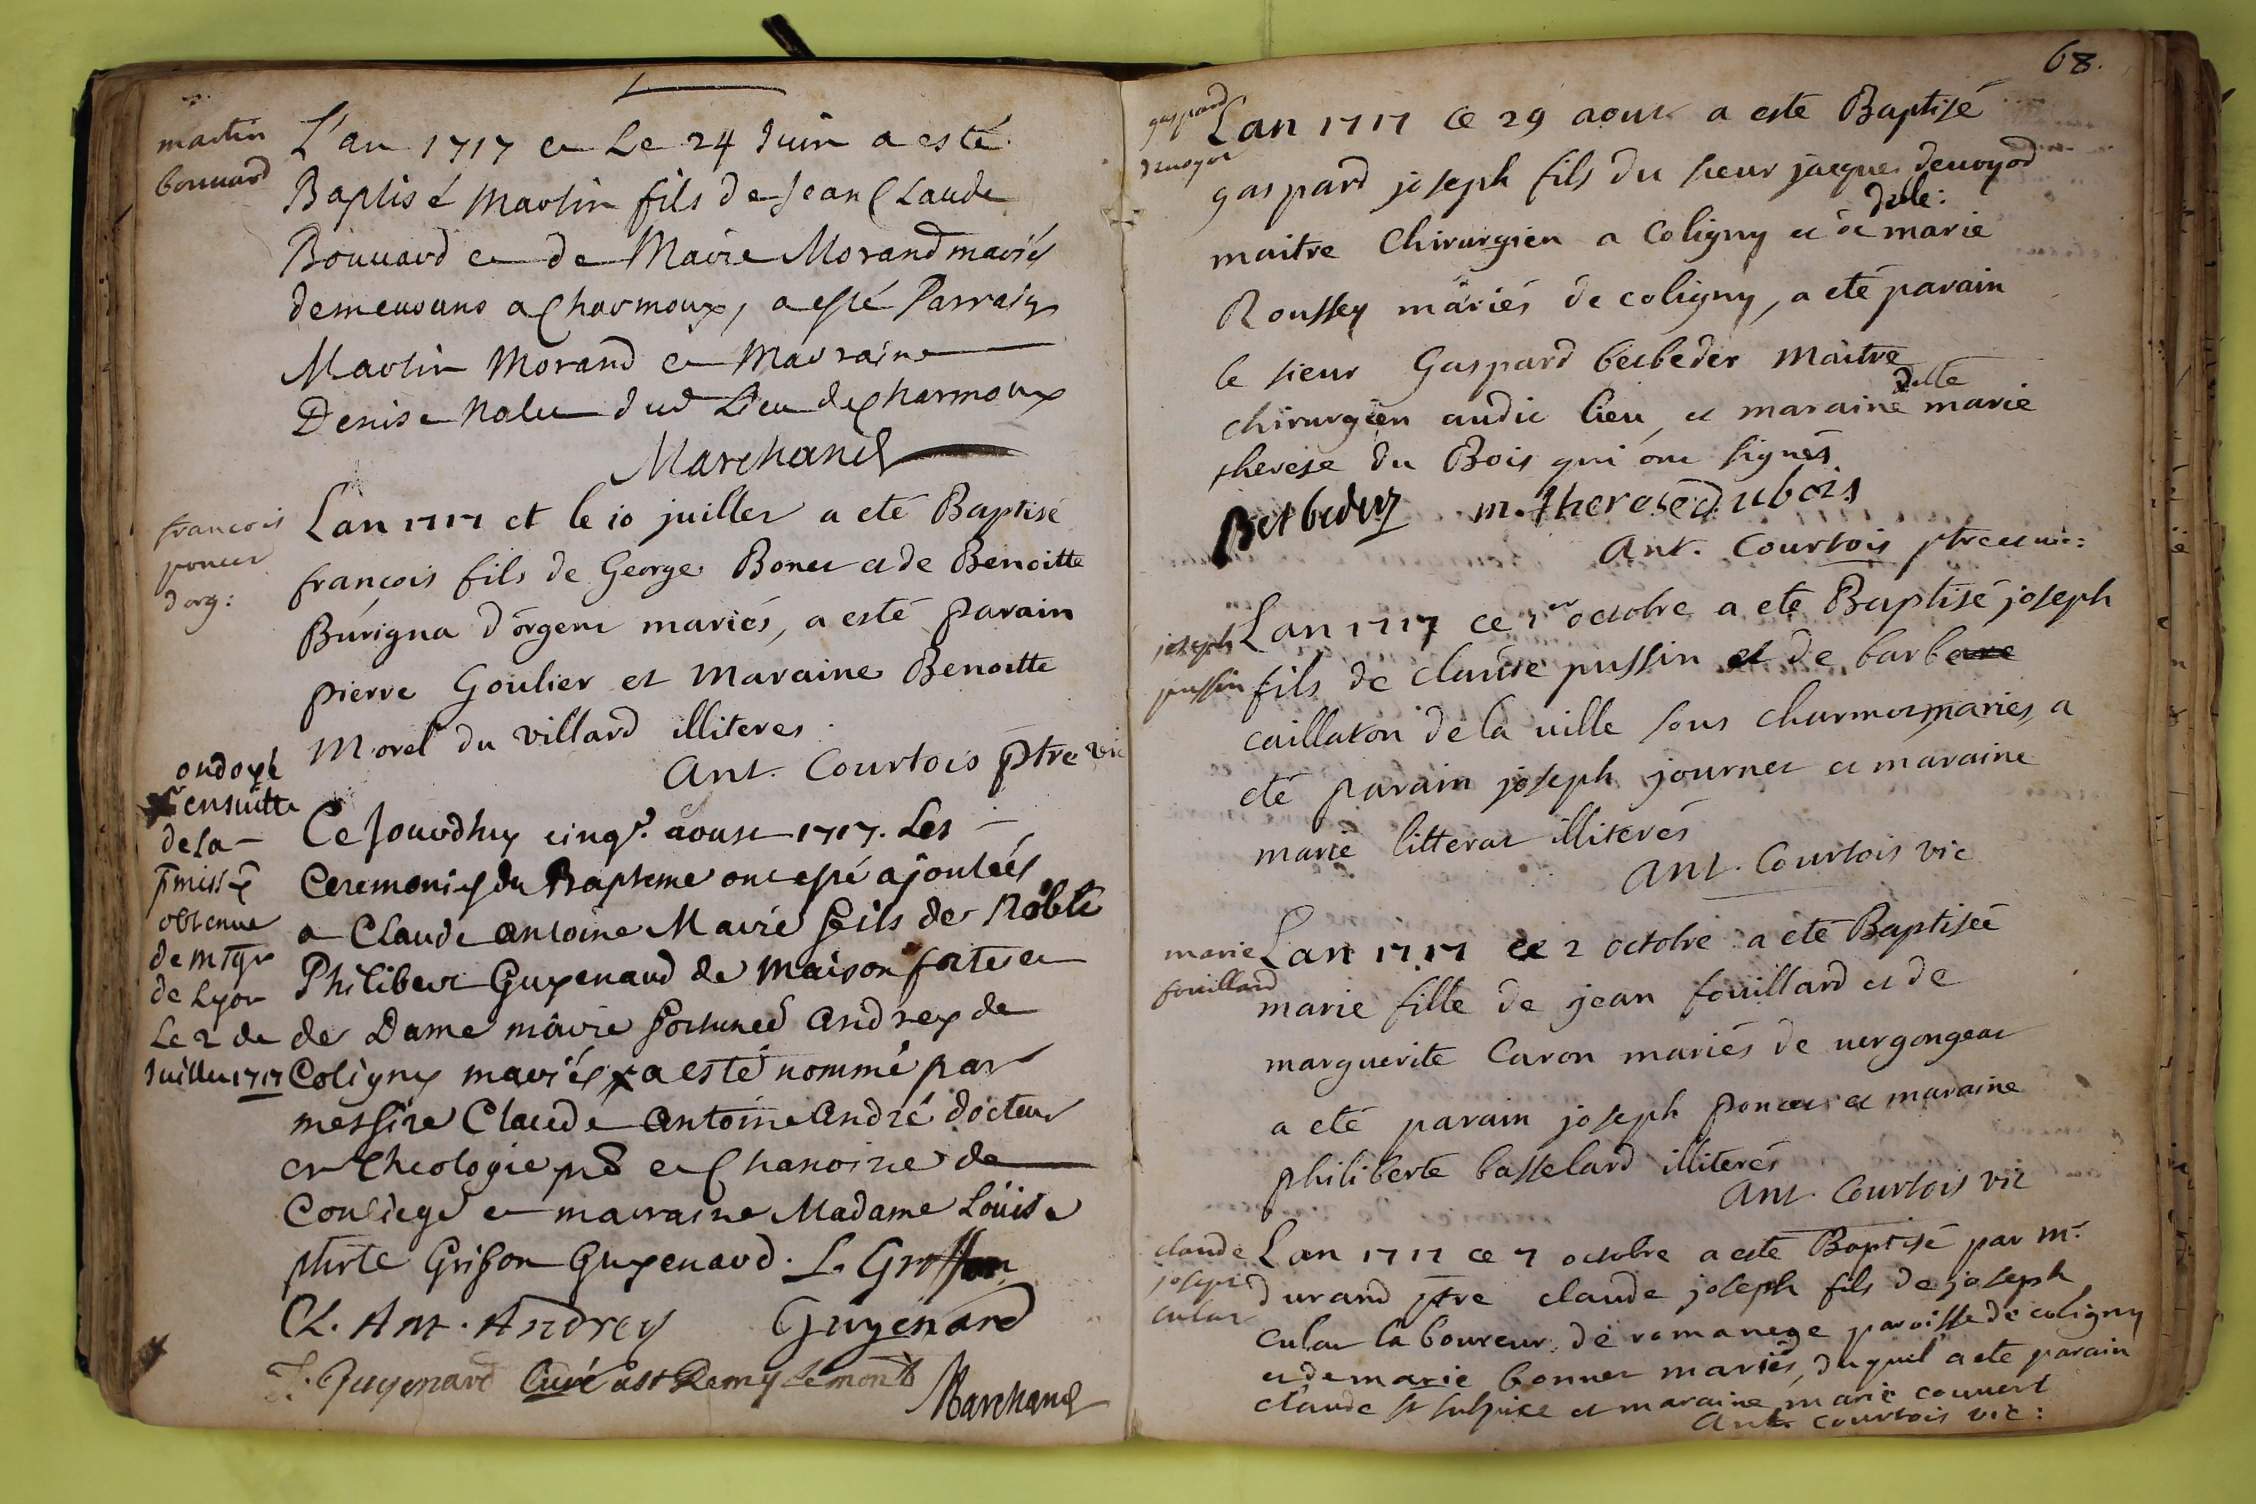 martin
bouuard
L'an 1717 et Le 24 Juin a esté
Baptisé Martin fils de Jean Claude
Bouuard et de Marie Morand mariés
demeurans a Charmoux, a esté Parrain
Martin Morand et Marraine
Denise Nalet dud Lieu de Charmoux
Marchand
francois
poncet
d'org:
Lan 1717 et le 10 juillet a eté Baptisé
francois fils de George Bonet et de Benoitte
Burigna d'orgent mariés, a esté parain
pierre Goulier et Maraine Benoitte
Morel du villard illiteres.
Ant. Courtois ptre vic
ondoyé
ensuitte
de la
pmissõ
obtenue
de mgr
de Lyon
Le 2 de
Juillet 1717
Ce Jourdhuy cinqe. aoust 1717. Les
Ceremonies du Bapteme ont esté ajoutées
a Claude antoine Marie fils de Noble
Philibert Guyenard de Maisonforte et
de Dame marie fortuneé Andrey de
Coligny mariés x a esté nommé par
messire Claude Antoine André docteur
en theologie et Chanoine de
Conliege et marraine Madame Louise
Grifon Guyenard. L. Griffon
Cl. Ant. Andrey Guyenard
J. Guyenard Curé a st Remy Le mont
Marchand
68.
gaspard
deuoyod
Lan 1717 ce 29 aout a esté Baptisé
gaspard joseph fils du sieur jacque deuoyod
maitre Chirurgien a Coligny et de delle: marie
Roussey mariés de coligny, a eté parain
le sieur Gaspard betbeder maitre
chirurgien audit lieu, et maraine delle marie
therese du Bois qui ont signés
Betbeder m. therese dubois
Ant. Courtois ptre et vic:
joseph
pussin
Lan 1717 ce 1er octobre a eté Baptisé joseph
fils de claude pussin et de barbe
caillaton de la uille sous charmoux mariés, a
eté parain joseph journet et maraine
marie litterat illiterés
Ant. Courtois vic
marie
fouillard
Lan 1717 ce 2 octobre a eté Baptiseé
marie fille de jean fouillard et de
marguerite Caron mariés de uergongeat
a eté parain joseph poncet et maraine
philiberte basselard illiterés
Ant. Courtois vic
claude
joseph
culat
Lan 1717 ce 7 octobre a esté Baptisé par mr.
durand ptre claude joseph fils de joseph
culat laboureur de romanege paroisse de coligny
et de marie bonnet mariés, duquel a eté parain
claude st sulpice et maraine marie couuert
Ant. Courtois vic: